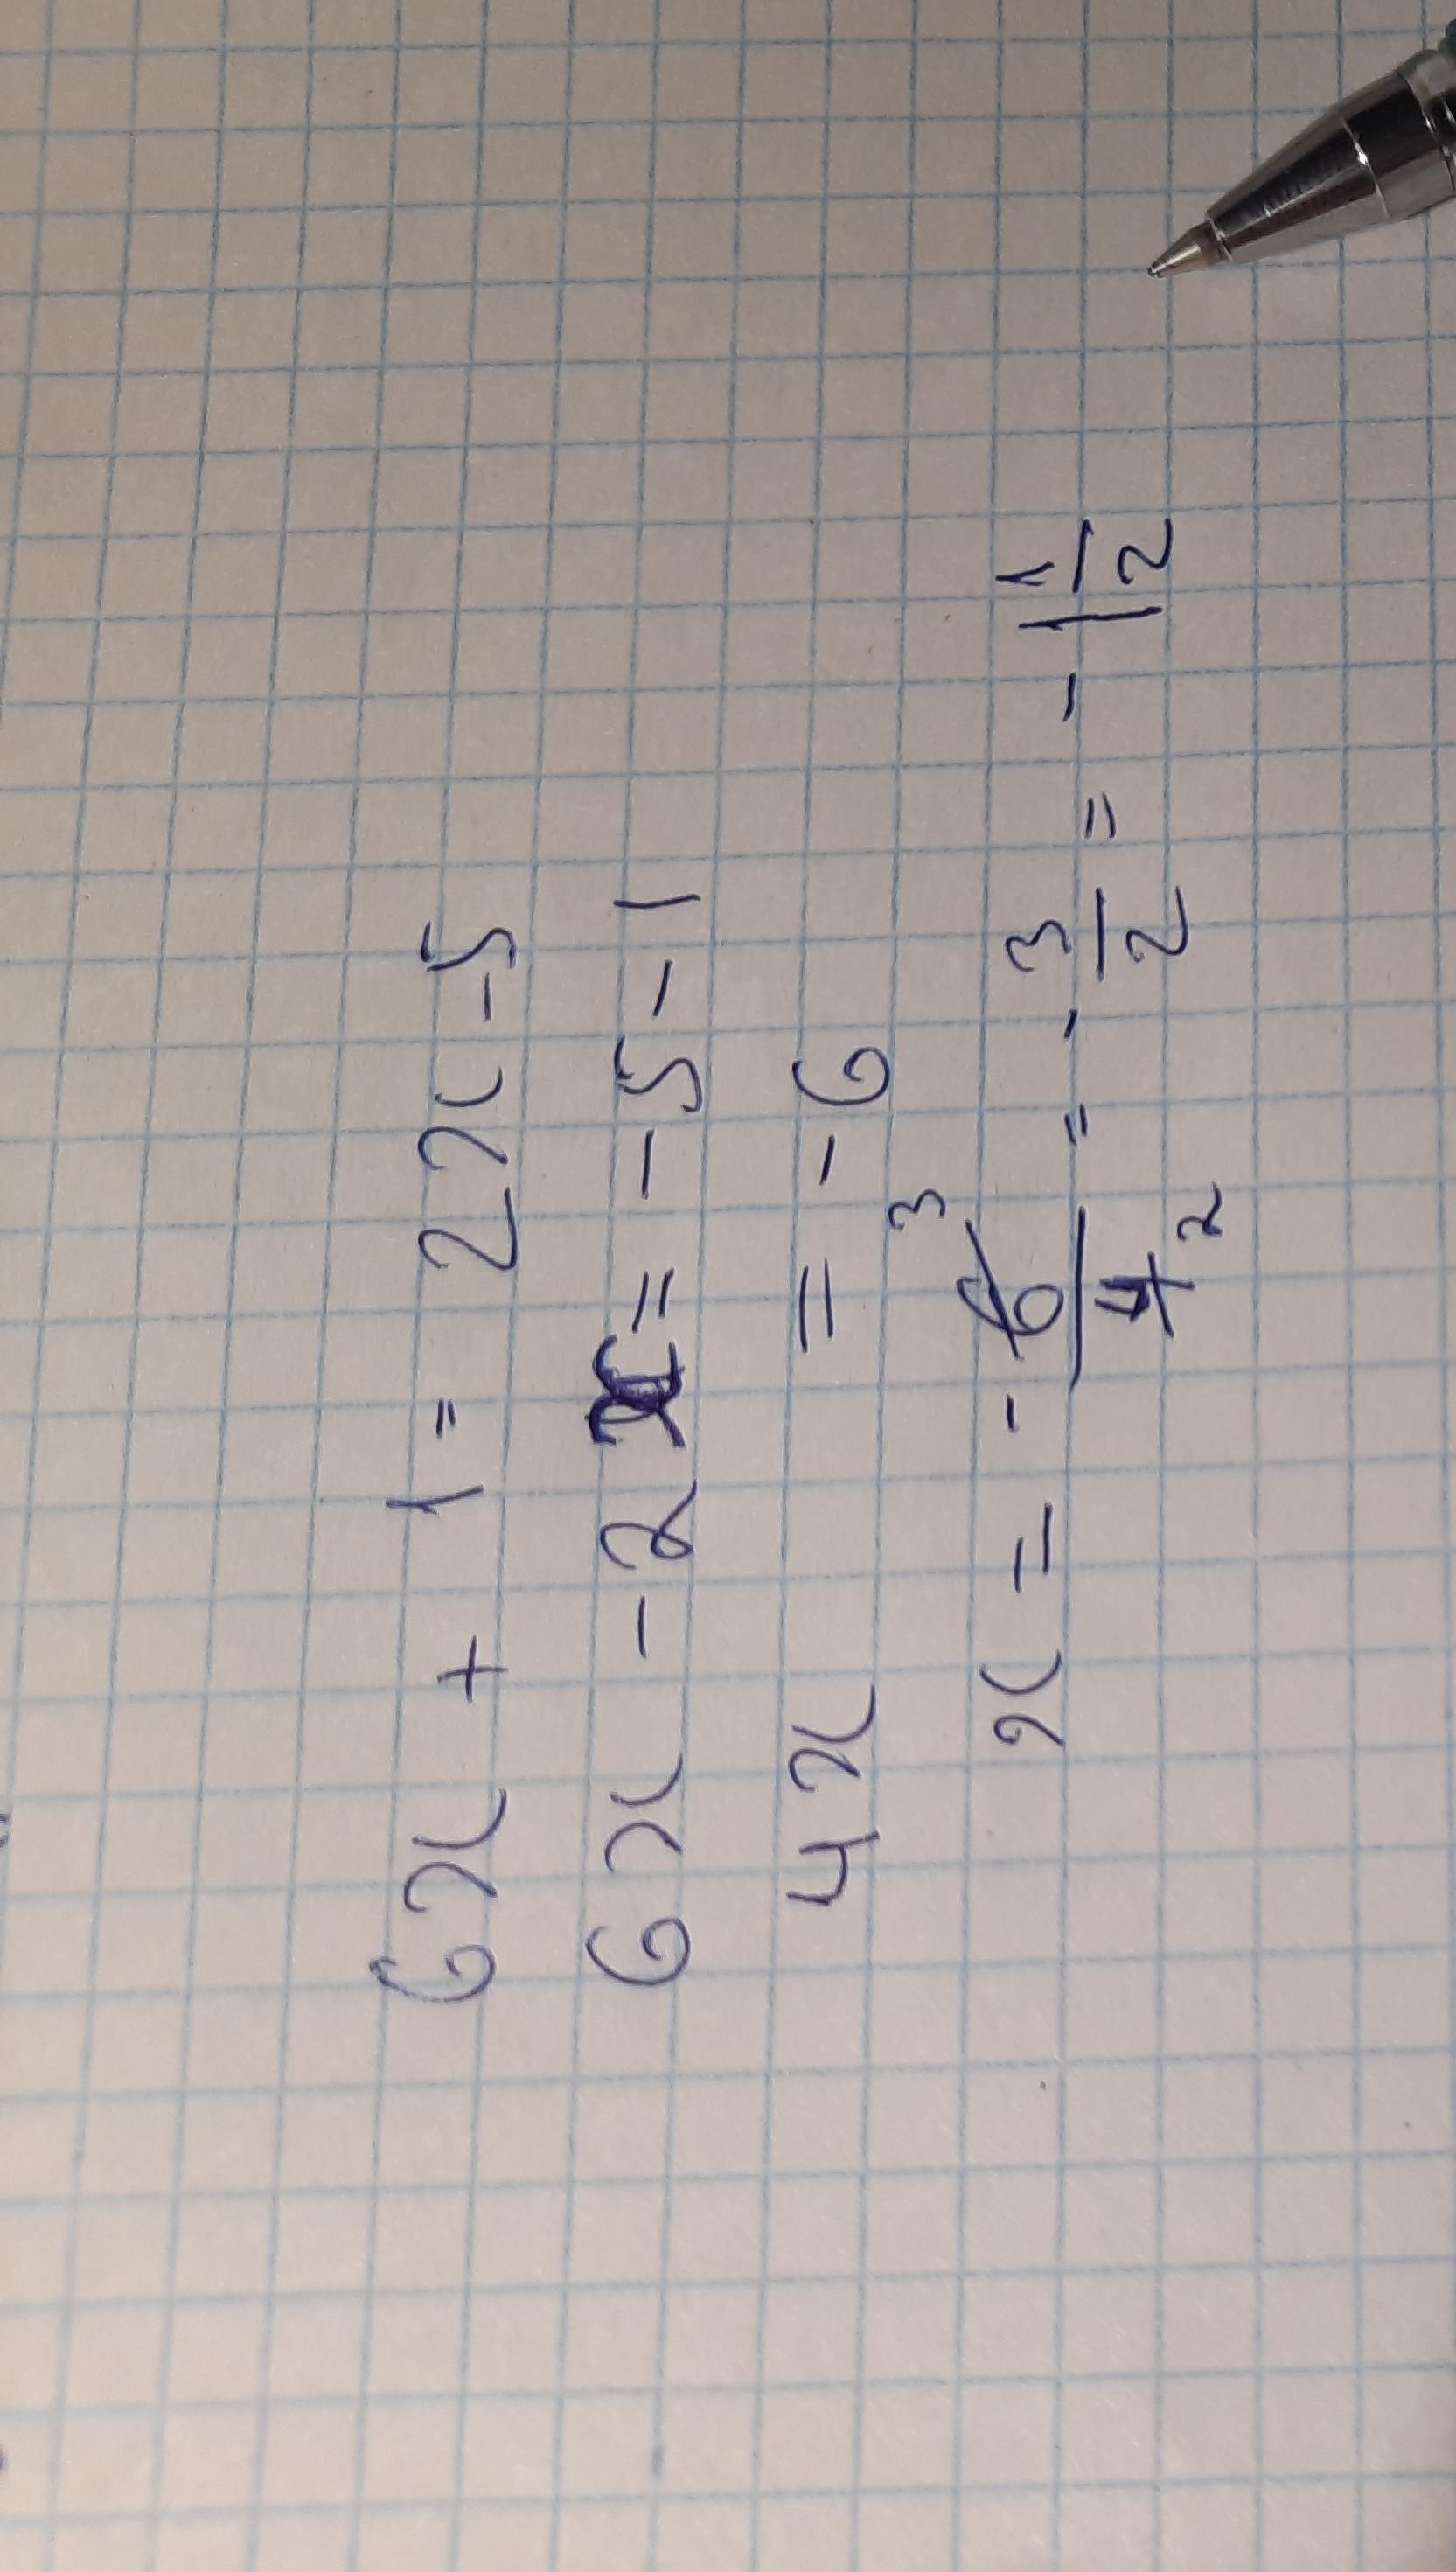 6x + 1 = 2x - 5
6x - 2x = - 5 - 1
4x = - 6
x = - 6/4 3 2 = - 3/2 = - 1 1/2